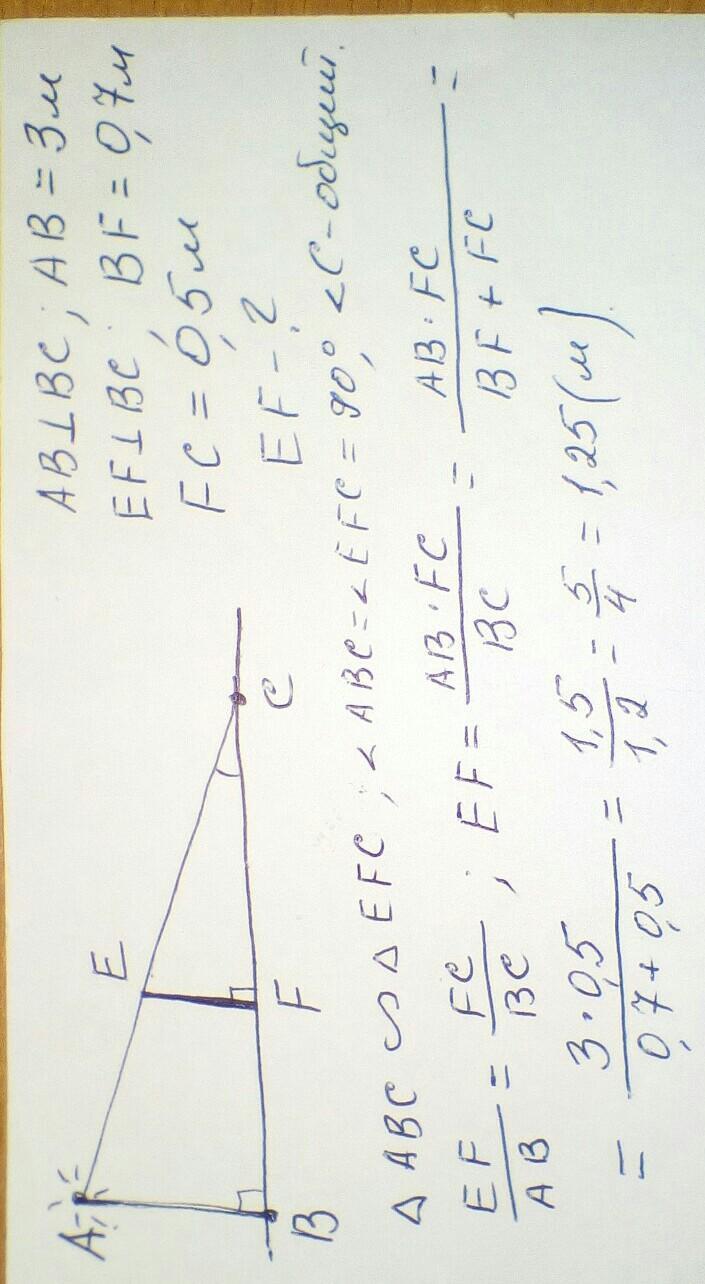 AB⊥BC; AB = 3м
EF⊥BC; BF = 0,7м
FC = 0,5м
EF - ?
A
E
B
F
C
△ABC ∽ △EFC, ∠ABC = ∠EFC = 90°, ∠C - общий.
EF/AB = FC/BC; EF = AB·FC/BC = AB·FC/BF + FC =
= 3·0,5/0,7+0,5 = 1,5/1,2 = 5/4 = 1,25 (м)